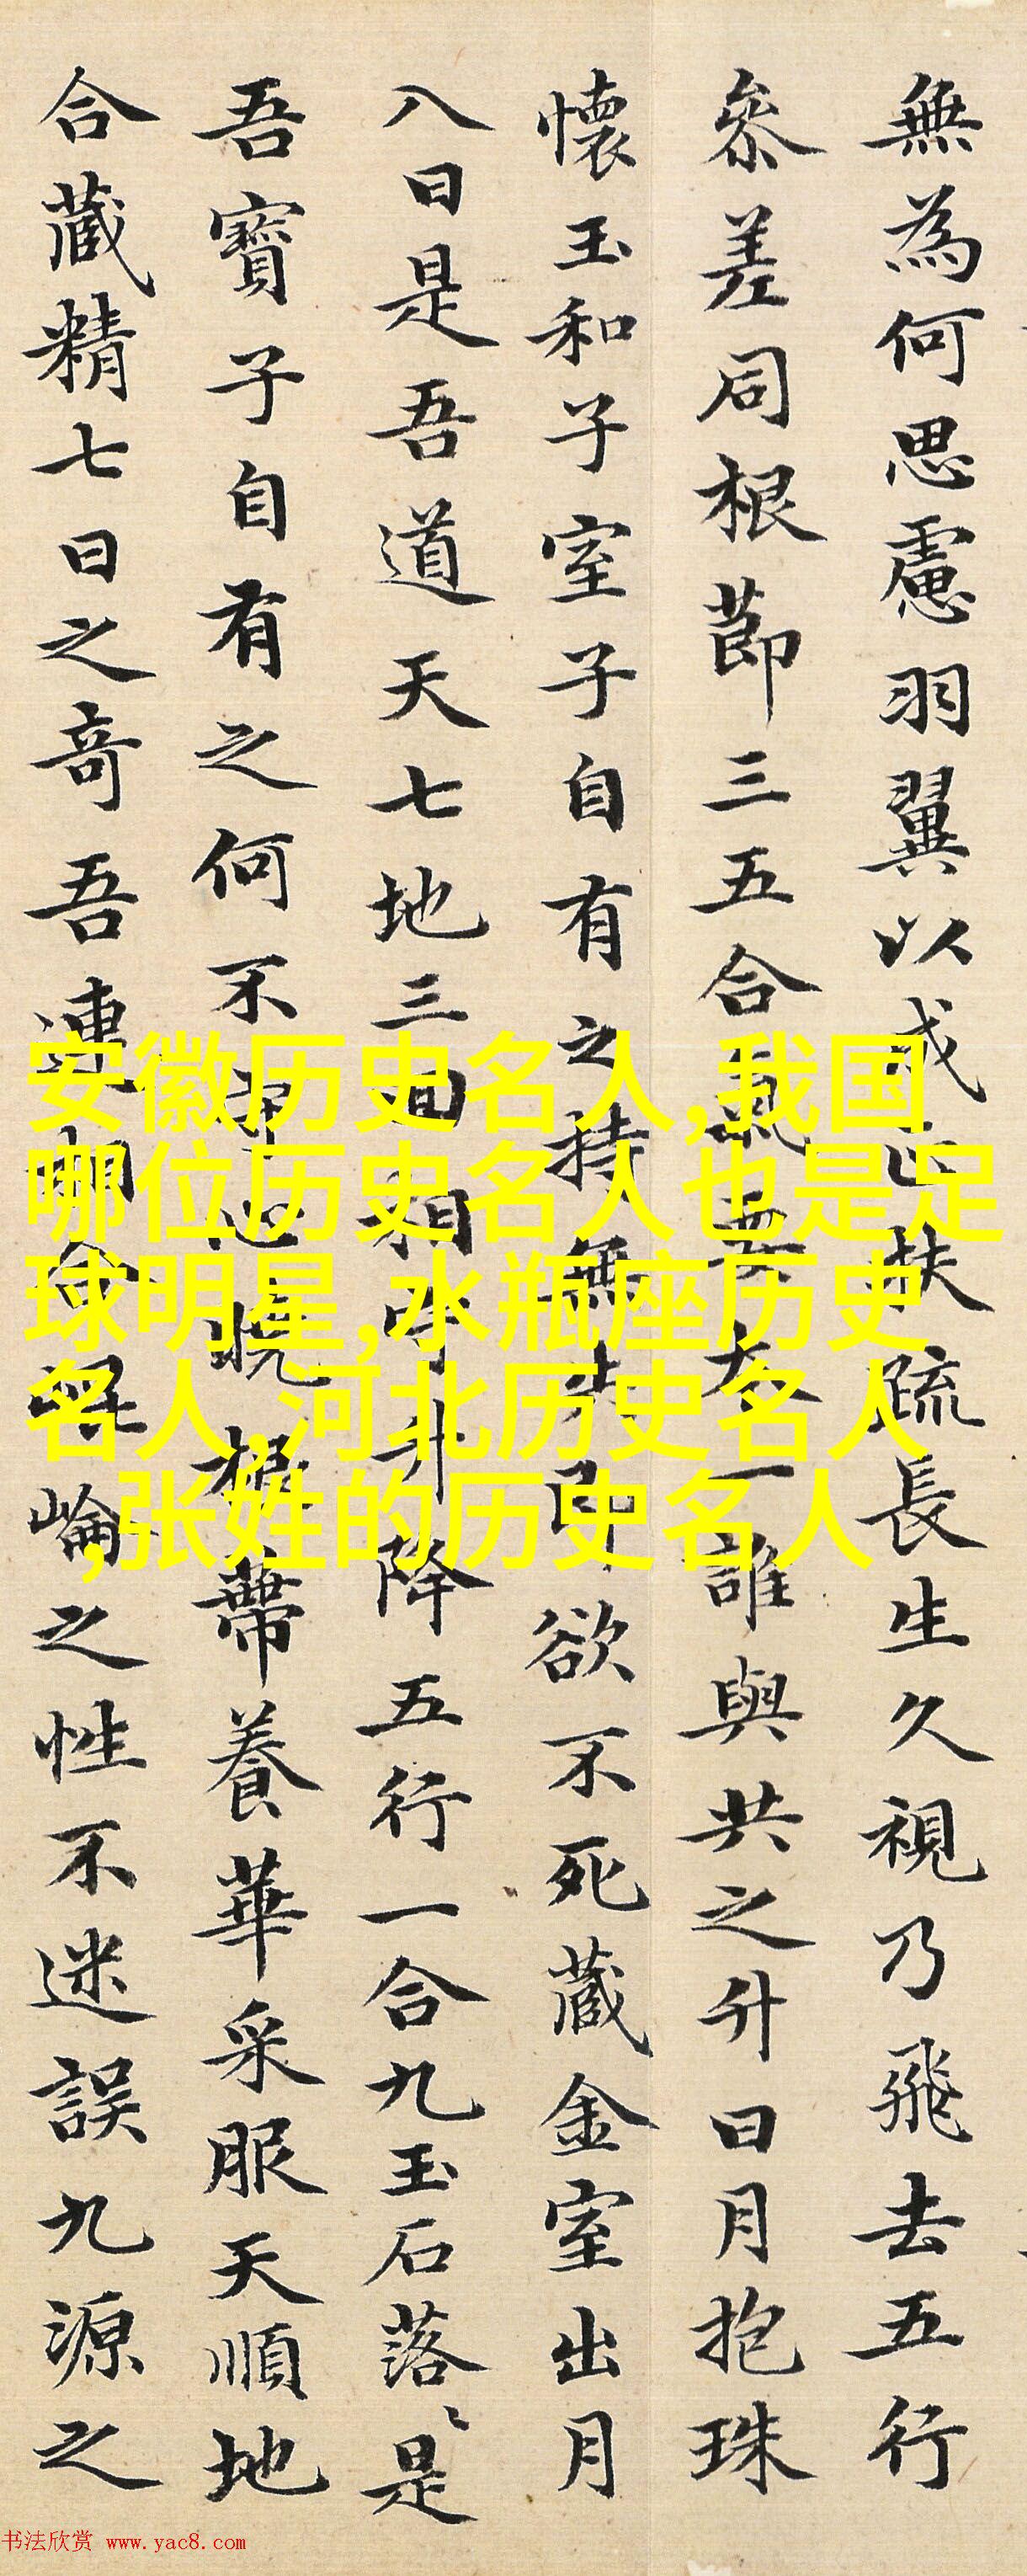 無為何思慮羽翼以成正扶疏長生久視乃飛去五行
參差同根節三五合氣要本一誰與共之升日月抱珠
懷玉和子室子自有之持無失即欲不死藏金室出月
入日是吾道天七地三回相守升降五行一合九玉石落落是
吾寶子自有之何不守心曉根蔕養華采服天順地
合藏精七日之奇吾連相合崐崘之性不迷誤九源之
安徽历史名人,我国
哪位历史名人也是足
球明星,水瓶座历史
名人,河北历史名人
,张姓的历史名人
书法欣赏 www.yac8.com